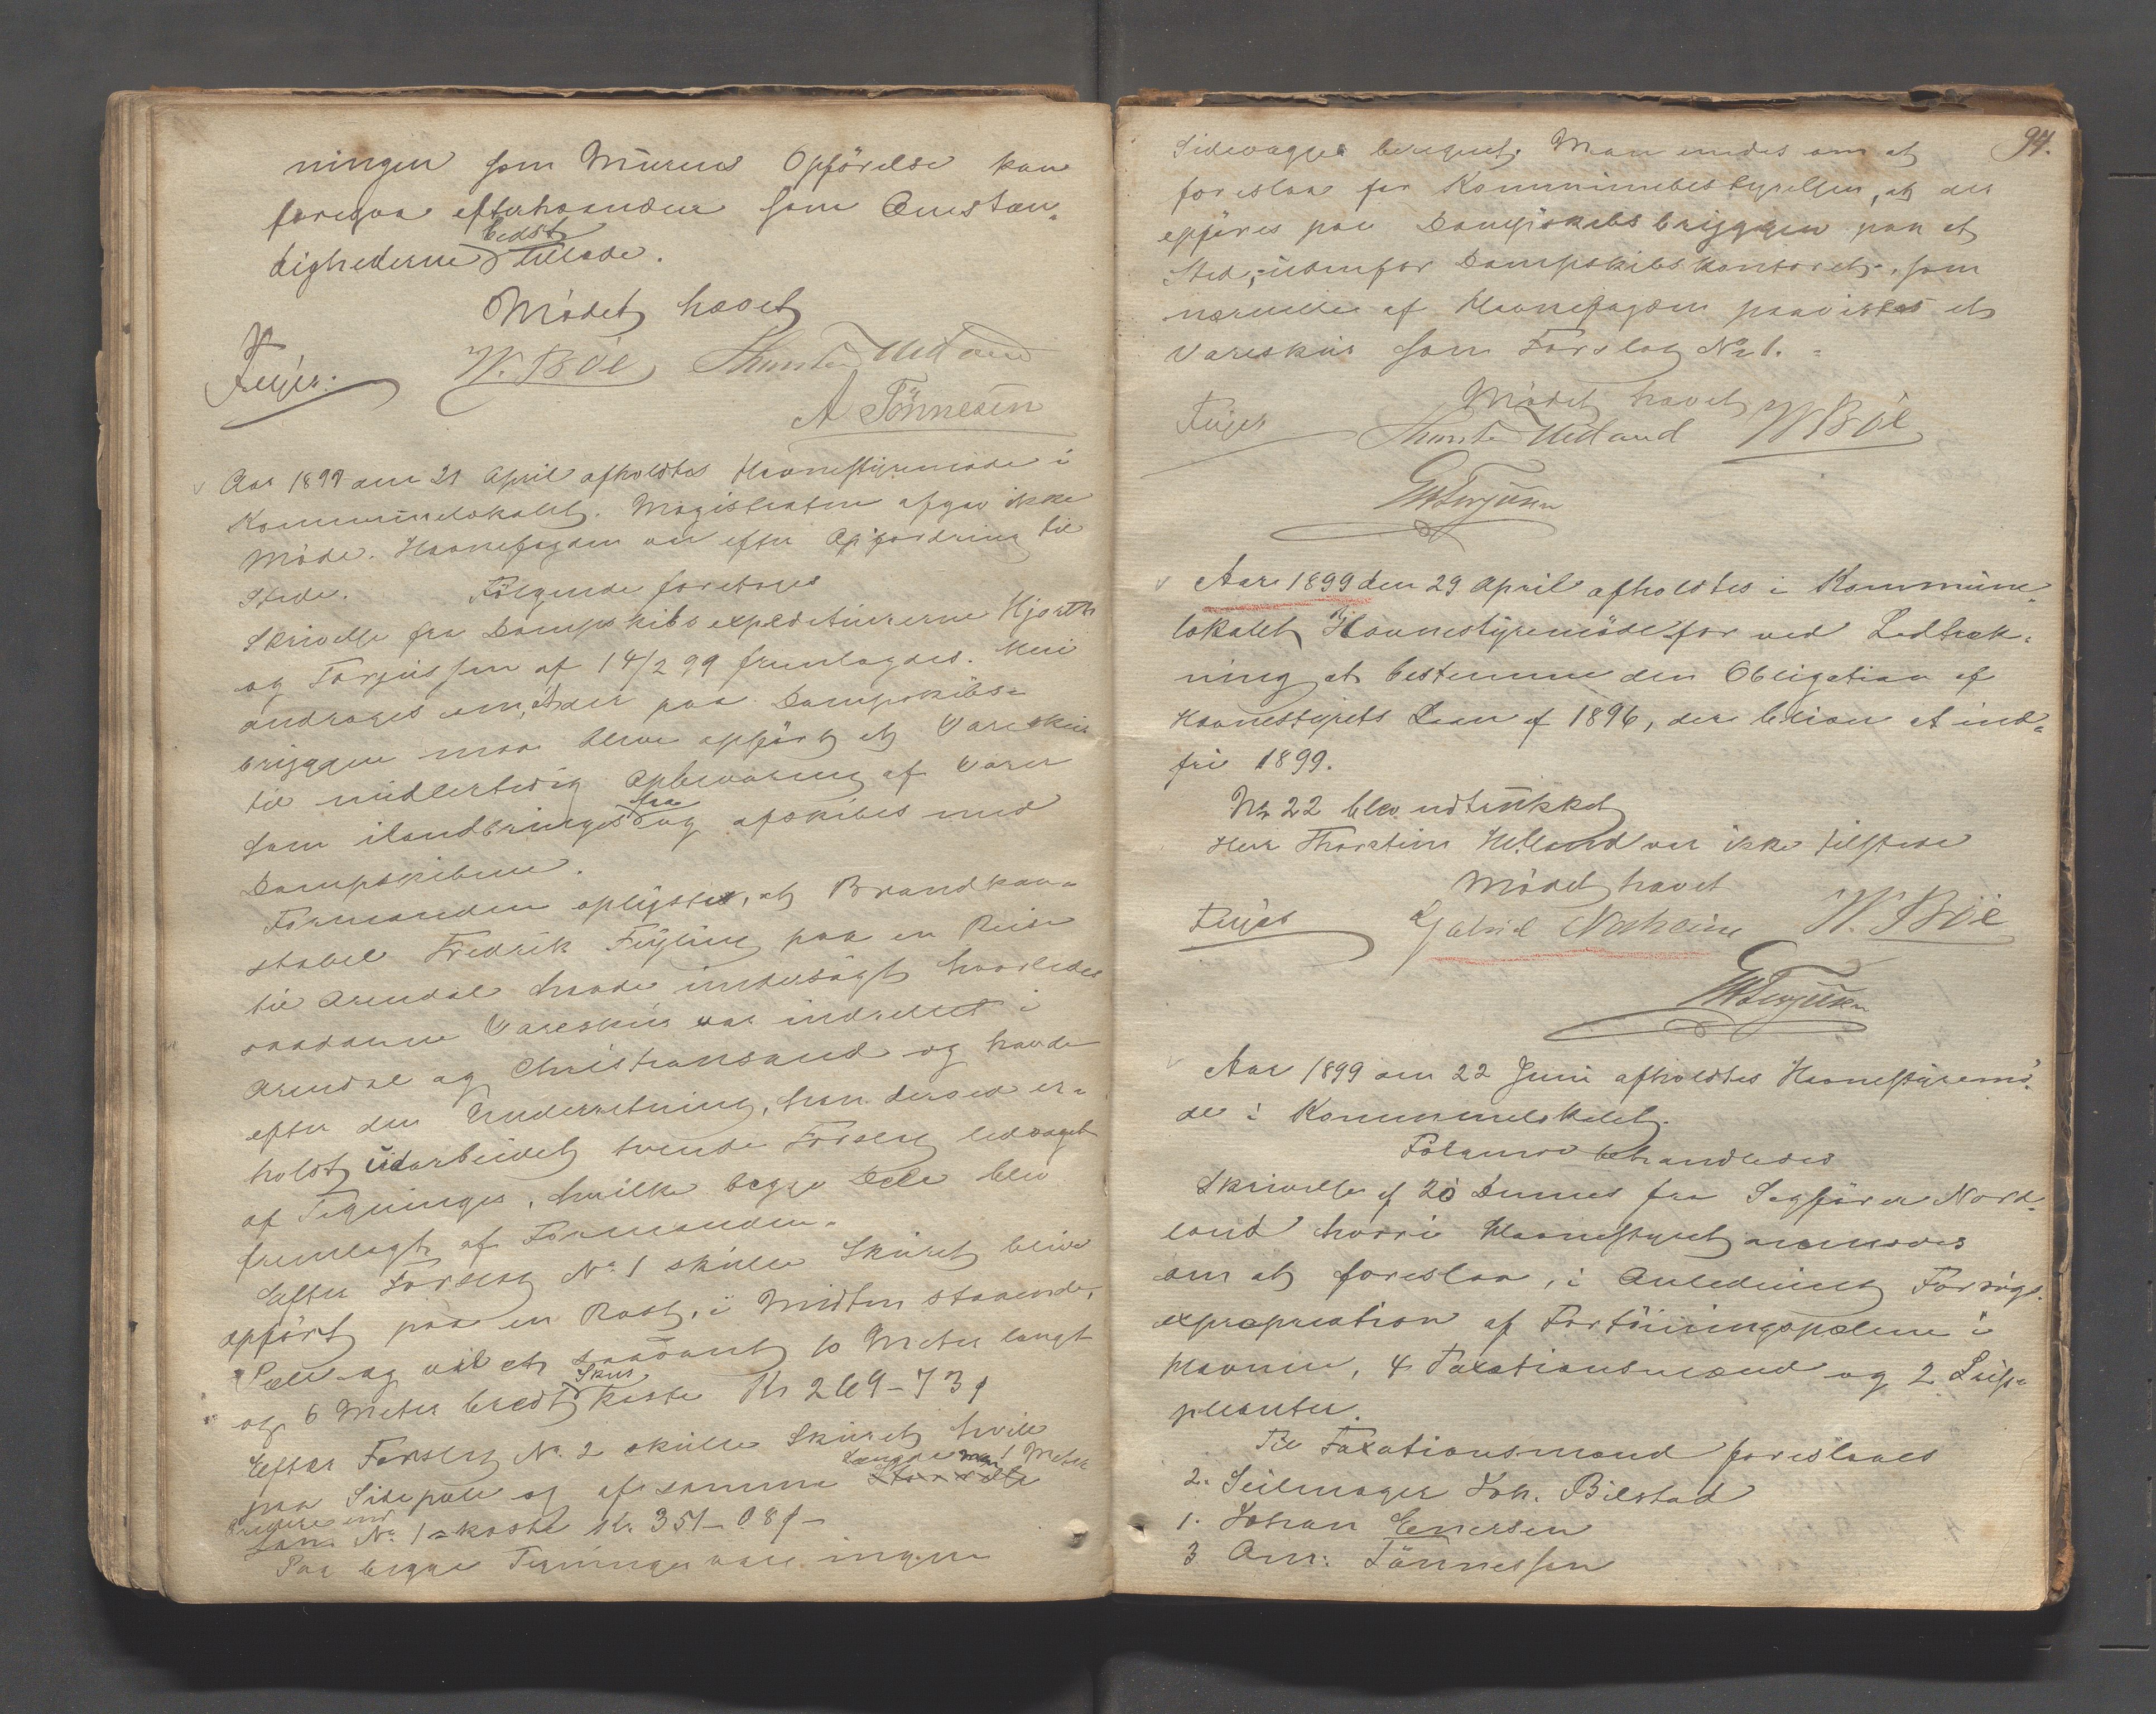 ningen som Murens Opförelse kan
foregaa efterhaanden som Omstæn-
dighederne bedst tillade.
Mödet hævet
Feyer. W. Böe Thorstein Helland
A Tönnesen
Aar 1899 den 21 April afholdtes Havnestyremöde i
Kommunelokalet. Magistraten afgav ikke
Möde. Havnefogden var efter Opfordring til
Stede. Fölgende foretoges
Skrivelse fra Dampskibsexpeditörerne Hjorth
og Torjussen af 14/2 99 fremlagdes. Heri
androges om, at der paa Dampskibs-
bryggen maa blive opfört et Vareskur
til midlertidig Opbevaring af Varer
som ilandbringes fra og afskibes med
Dampskibene.
Formanden oplyste, at Brandkon-
stabel Fredrik Fuglli paa en Reise
til Arendal havde undersögt hvorledes
saadanne Vareskur var indrettet i
Arendal og Christiansand og havde
efter den Underretning, han derved er-
holdt udarbeidet tvende Forslag ledsaget
af Tegninger, hvilke begge Dele blev
fremlagt af Formanden.
Efter Forslag No 1 skulle Skuret blive
opfört paa en Rad, i Midten staaende,
Pæle og vil et saadant 10 Meter langt
og 6 Meter bredt Skur koste Kr 269-73 ø
Efter Forslag No 2 skulle Skuret hvile
paa Sidepæle og af samme Længde men 1 Meter
bredere end
som No 1 - koste Kr. 351-08 ø -
Paa begge Tegninger vare ingen
94.
Sidevægge beregnet. Man enedes om at
foreslaa for Kommunebestyrelsen, at der
opföres paa Dampskibsbryggen paa et
Sted, udenfor Dampskibskontoret, som
nærmere af Havnefogden paavises et
Vareskur som Forslag No 1.
Mödet hævet
Feyer Thorstein Helland W Böe
GMTorjusen
Aar 1899 den 29 April afholdtes i Kommune-
lokalet Havnestyremöde for ved Lodtræk-
ning at bestemme den Obligation af
Havnestyrets Laan af 1896, der bliver at ind-
fri 1899.
Nr 22 blev udtrukket
Herr Thorstein Helland var ikke tilstede
Mödet hævet
Feyer Gabriel Nørheim W. Böe
GMTorjusen
Aar 1899 den 22 Juni afholdtes Havnestyremö-
de i Kommunelokalet.
Fölgende behandledes
Skrivelse af 20 Dennes fra Sagförer Nord-
land hvori Havnestyret anmodes
om at foreslaa, i Anledning Forsögs-
expropriation af Fortöiningspælene i
Havnen, 4 Taxationsmænd og 2 Sup-
pleanter.
Til Taxationsmænd foreslaaes
2. Seilmager Joh. Bilstad
1. Johan Enersen
3 Om: Tönnessen